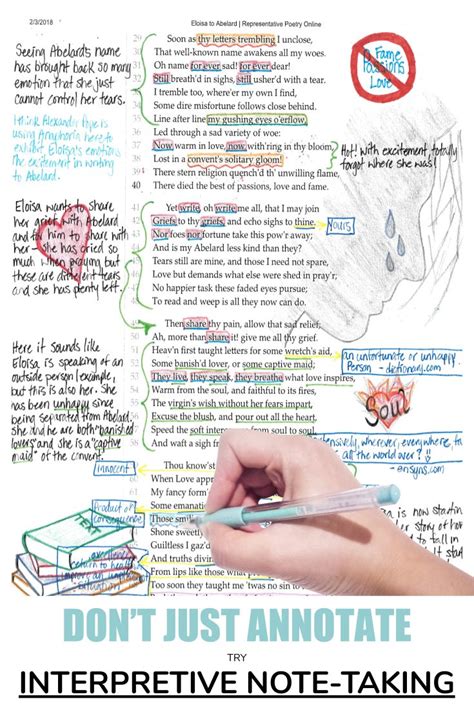 2/3/2018
Eloisa to Abelard | Representative Poetry Online
Seeing Abelard's name
has brought back so many
emotion that she just
cannot control her tears.
I think Alexander Pope is
using Anaphoria here to
exhibit Eloisa's emotions
the excitement in writing
to Abelard.
Eloisa wants to share
her grief with Abelard
and for him to share with
her - she has cried so
much when praying but
these are different tears
and she has plenty left.
Here it sounds like
Eloisa is speaking of an
outside person/example,
but this is also her. She
has been unhappy since
being separated from Abelard,
she and he are both "banished
lovers" and she is a "captive
maid" of the convent.
innocent
Product or
consequence
TEXT
29 Soon as thy letters trembling I unclose,
30 That well-known name awakens all my woes.
31 Oh name for ever sad! for ever dear!
32 Still breath'd in sighs, still usher'd with a tear.
33 I tremble too, where'er my own I find,
34 Some dire misfortune follows close behind.
35 Line after line my gushing eyes o'erflow,
36 Led through a sad variety of woe:
37 Now warm in love, now with'ring in thy bloom,
38 Lost in a convent's solitary gloom!
39 There stern religion quench'd th' unwilling flame,
40 There died the best of passions, love and fame.
41 Yet write, oh write me all, that I may join
42 Griefs to thy griefs, and echo sighs to thine.
43 Nor foes nor fortune take this pow'r away;
44 And is my Abelard less kind than they?
45 Tears still are mine, and those I need not spare,
46 Love but demands what else were shed in pray'r;
47 No happier task these faded eyes pursue;
48 To read and weep is all they now can do.
49 Then share thy pain, allow that sad relief;
50 Ah, more than share it! give me all thy grief.
51 Heav'n first taught letters for some wretch's aid,
52 Some banish'd lover, or some captive maid;
53 They live, they speak, they breathe what love inspires,
54 Warm from the soul, and faithful to its fires,
55 The virgin's wish without her fears impart,
56 Excuse the blush, and pour out all the heart,
57 Speed the soft intercourse from soul to soul,
58 And waft a sigh
Thou know'st
When Love appr
My fancy form'
Some emanati
Those smil
Shine sweetly
Guiltless I gaz'd
And truths divin
From lips like those what
Too soon they taught me 'twas no sin to
Fame
Passions
Love
Hot! with excitement, totally
forgot where she was!
yours
an unfortunate or unhappy
Person - dictionary.com
Soul
wherever, everywhere,
all the world over?
is now startin
story of hot
to fall in
DON'T JUST ANNOTATE
TRY
INTERPRETIVE NOTE-TAKING